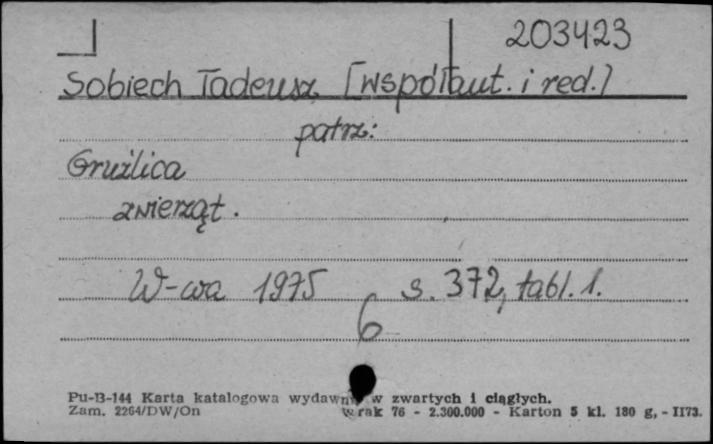 203423
Sobiech Tadeusz [współaut. i red.]
patrz:
Gruźlica
zwierząt.
W-wa 1975 s. 372, tabl. 1.
6
Pu-B-144 Karta katalogowa wydawn w zwartych i ciągłych.
Zam. 2264/DW/On rak 76 - 2.300.000 - Karton 5 kl. 180 g, - II73.